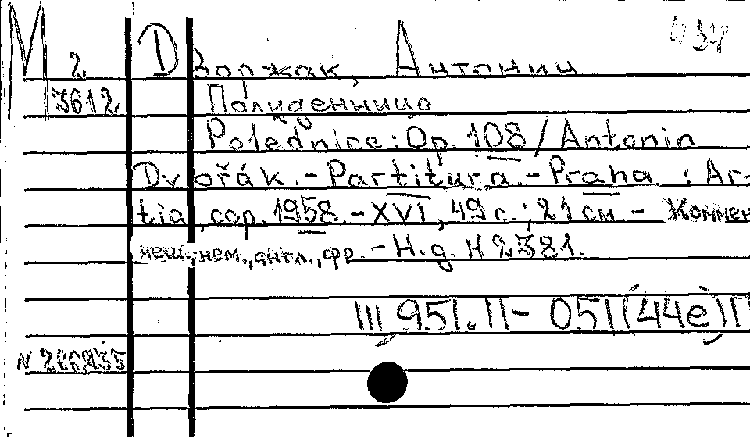 М 2 Дворжак, Антонин
3612 Полуденница
Polednice: Op. 108 / Antonin
Dvořák. - Partitura. - Praha : Ar-
tia, cop. 1958. - XVI, 49 с.; 21 см - Коммен
чеш., нем., англ., фр. - Н. д. H 2381.
III 951.II - 051(44е)П